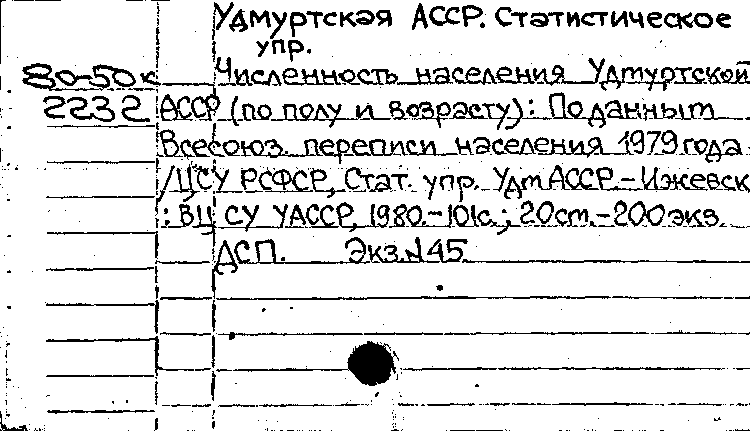 Удмуртская АССР. Статистическое
упр.
80-50к Численность населения Удмуртской
2232 АССР (по полу и возрасту): По данным
Всесоюз. переписи населения 1979 года
/ЦСУ РСФСР, Стат. упр. Удм АССР.-Ижевск
: ВЦ СУ УАССР, 1980.-101с.; 20см.-200экз.
ДСП. Экз.№45